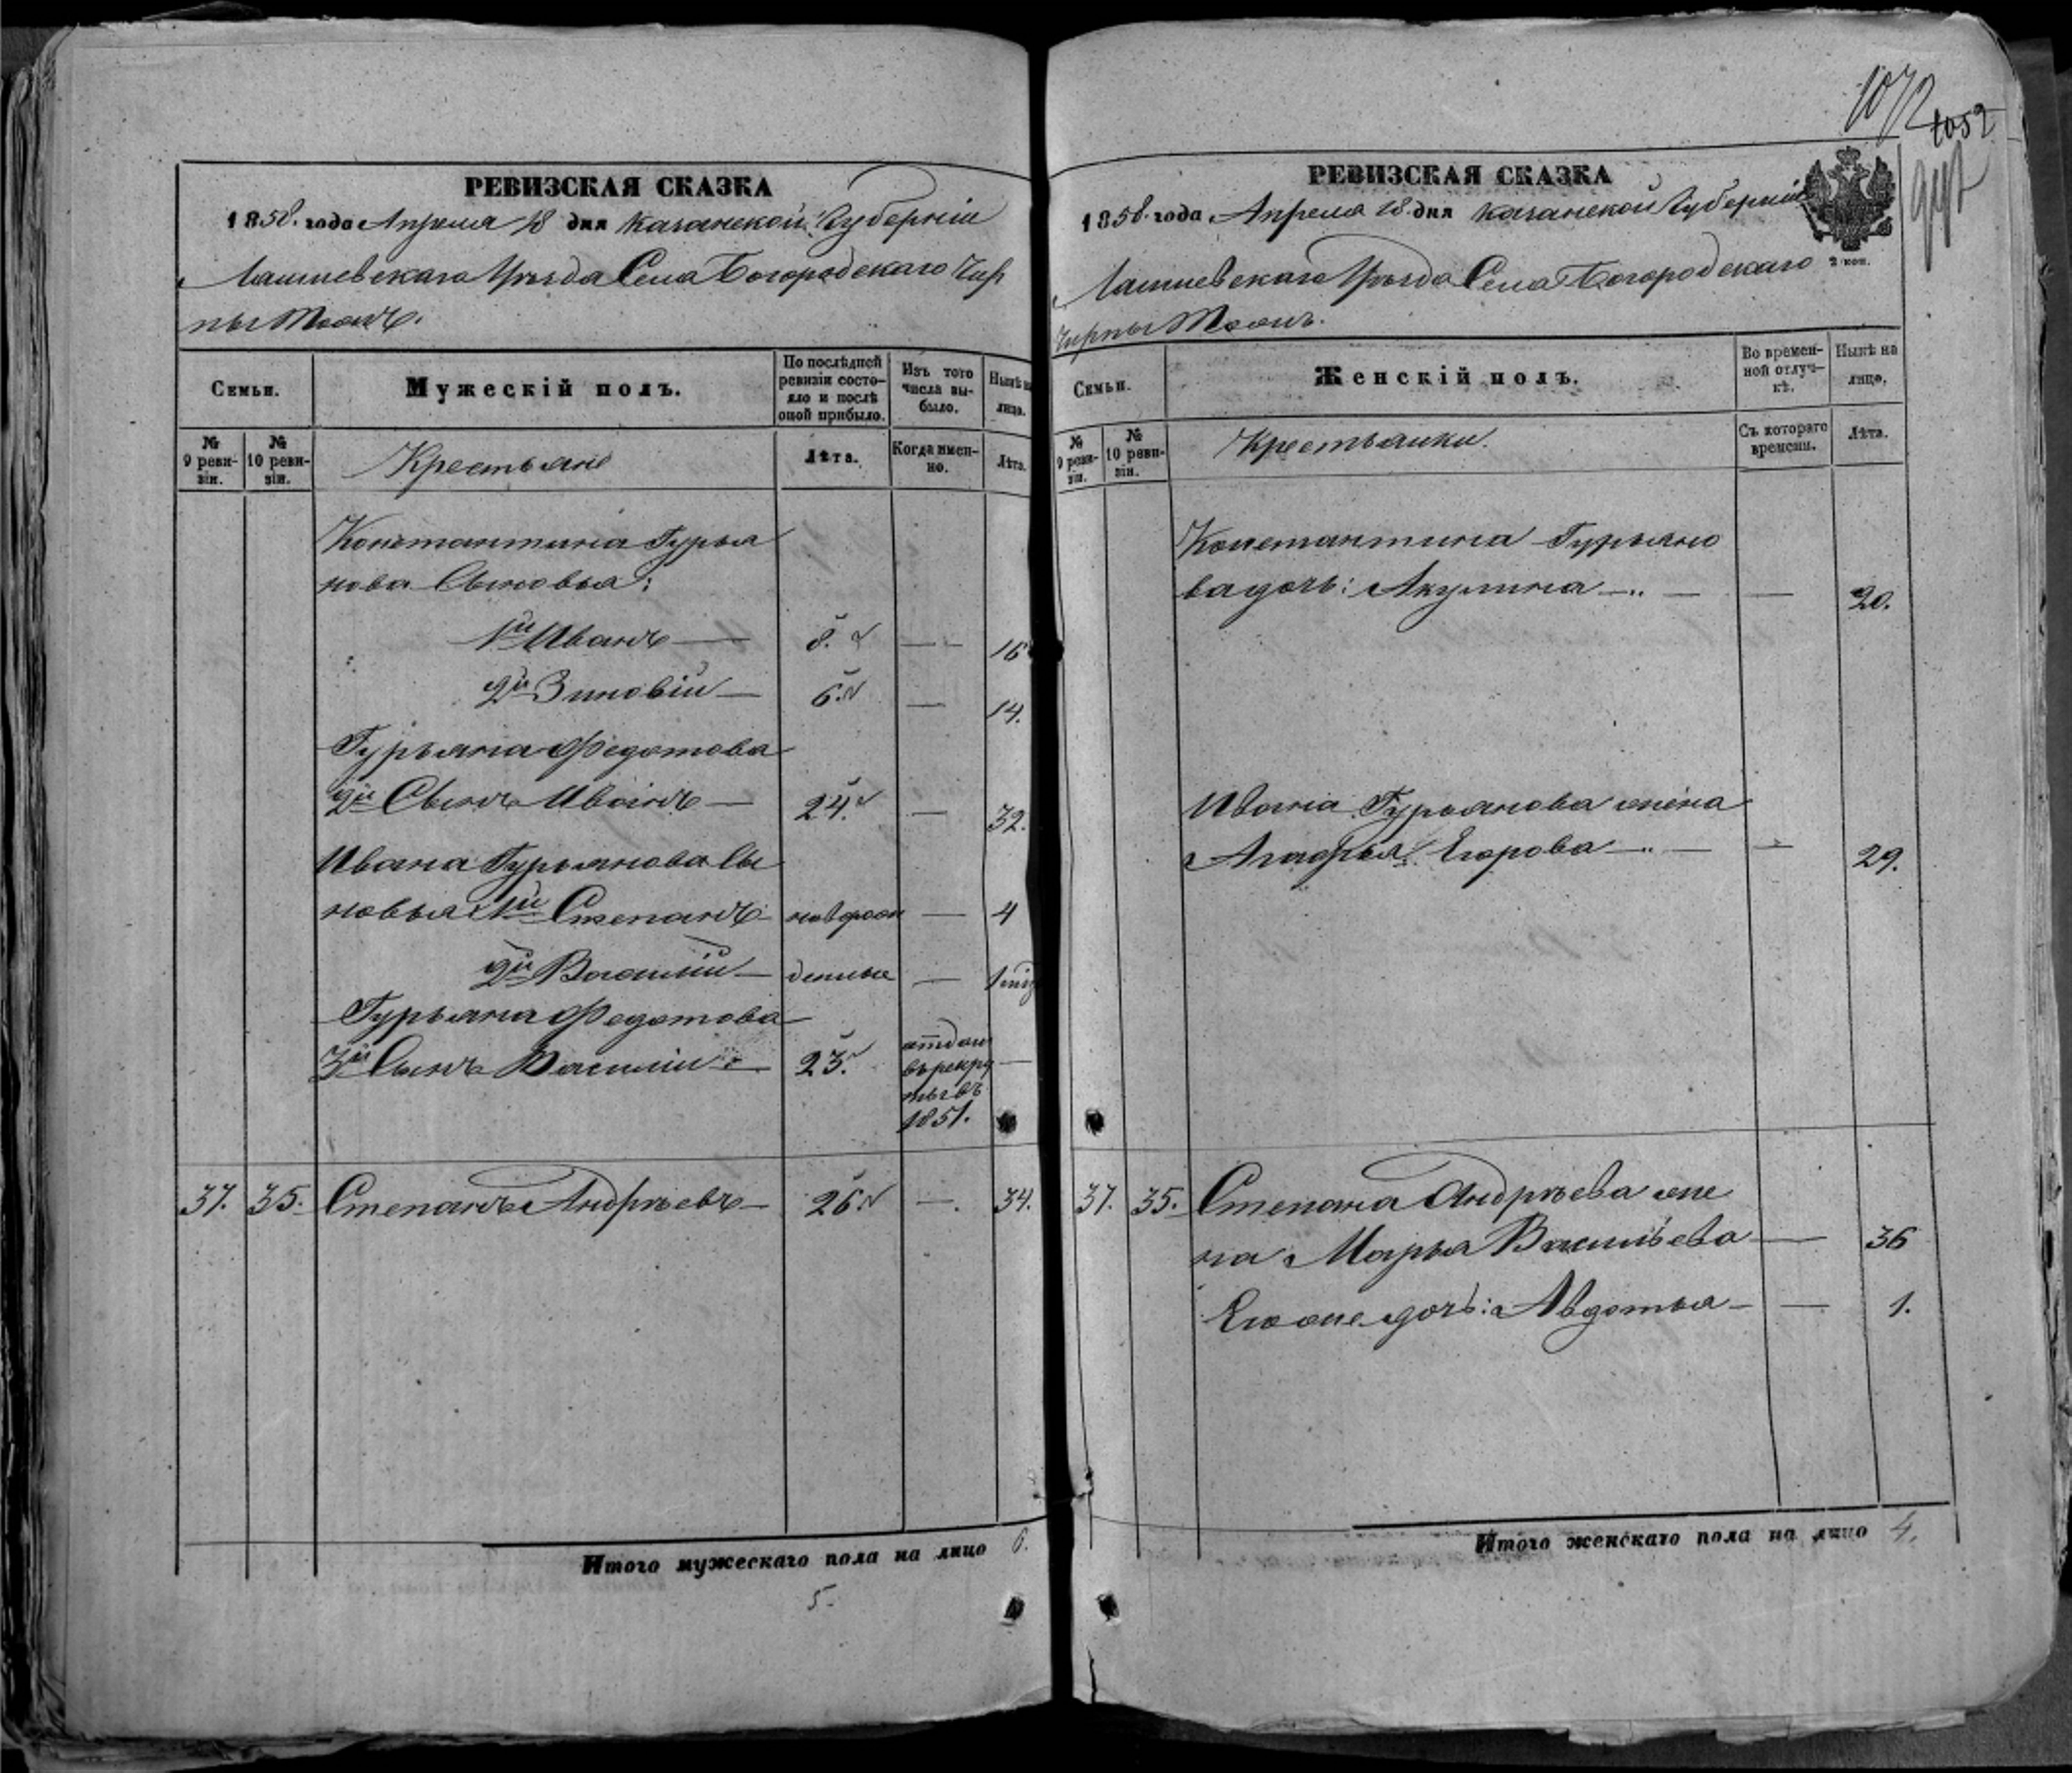 РЕВИЗСКАЯ СКАЗКА
1858. года Апреля 18 дня Казанской Губерніи
Лаишевскаго Уѣзда Села Богородскаго Чир
пы тожъ.
Семьи.
Мужескій полъ.
По послѣдней ревизіи состо-
яло и послѣ
оной прибыло.
Изъ того
числа вы-
было.
Нынѣ на
лицо.
№
9 реви-
зіи.
№
10 реви-
зіи.
Крестьяне
Лѣта.
Когда имен-
но.
Лѣта.
Константина Гурья
нова Сыновья:
1й Иванъ — 8. — 16
2й Зиновій — 6. — 14.
Гурьяна Федотова
2й Сынъ Иванъ — 24. — 32.
Ивана Гурьянова Сы
новья 1й Степанъ новорож — 4
2й Василій — денные — 1
Гурьяна Федотова
3й Сынъ Василій — 23. —
отдан
въ рекру
ты въ
1851.
37. 35. Степанъ Андреевъ — 26 —. 34.
Итого мужескаго пола на лицо 6.
5.
1072
1052
РЕВИЗСКАЯ СКАЗКА
1858. года Апреля 18 дня Казанской Губерніи
2 коп.
Лаишевскаго Уѣзда Села Богородскаго
Чирпы Тожъ.
Семьи.
Женскій полъ.
Во времен-
ной отлуч-
кѣ.
Нынѣ на
лицо.
№
9 реви-
зіи.
№
10 реви-
зіи.
Крестьянки.
Съ котораго
времени.
Лѣта.
Константина Гурьяно
ва дочь: Акулина — — 20.
Ивана Гурьянова жена
Агафья Егорова — — 29.
37. 35. Степана Андреева же
на Марья Васильева — 36
Его же дочь: Авдотья — — 1.
Итого женскаго пола на лицо 4.